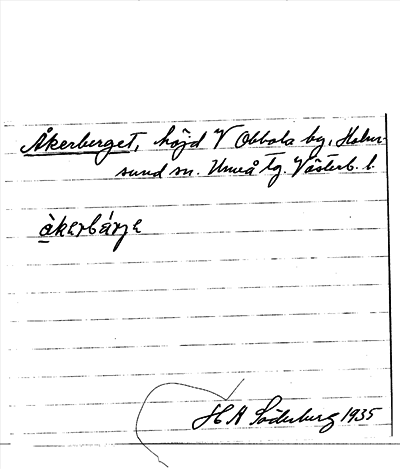 Åkerberget, höjd V Obbola by, Holm-
sund sn. Umeå tg. Västerb. l.
àkerbárje
H A Söderberg 1935